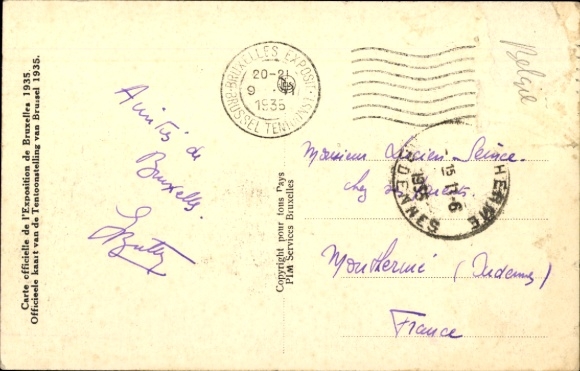 Carte officielle de l'Exposition de Bruxelles 1935.
Officieele kaart van de Tentoonstelling van Brussel 1935.
Amitiés de
Bruxelles.
Copyright pour tous Pays
PIM Services Bruxelles
BRUXELLES EXPOSIT.
20-21
9
1935
BRUSSEL TENTOONST.
België
Monsieur Lucien
chez
Monthermé (Ardennes)
France
HERMÉ
15
-6
1935
ARDENNES